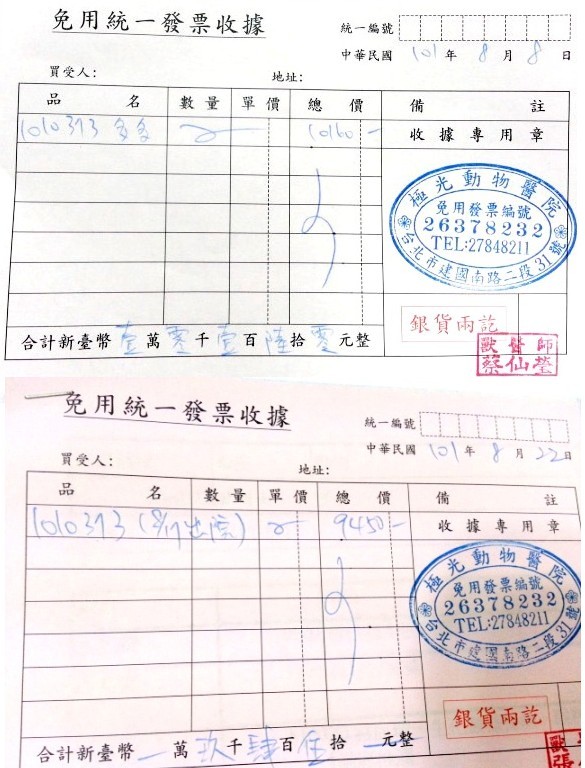 免用統一發票收據
統一編號
中華民國 101 年 8 月 8 日
買受人： 地址：
品 名 數量 單價 總 價 備 註
1010373 多多 10160- 收據專用章
極光動物醫院
免用發票編號
26378232
TEL:27848211
台北市建國南路二段31號
銀貨兩訖
獸醫師
蔡仙瑩
合計新臺幣 壹 萬 零 千 壹 百 陸 拾 零 元整
免用統一發票收據
統一編號
中華民國 101 年 8 月 22 日
買受人： 地址：
品 名 數量 單價 總 價 備 註
1010373 (8/17出院) 9450- 收據專用章
極光動物醫院
免用發票編號
26378232
TEL:27848211
台北市建國南路二段31號
銀貨兩訖
獸
張
合計新臺幣 一 萬 玖 千 肆 百 伍 拾 一 元整